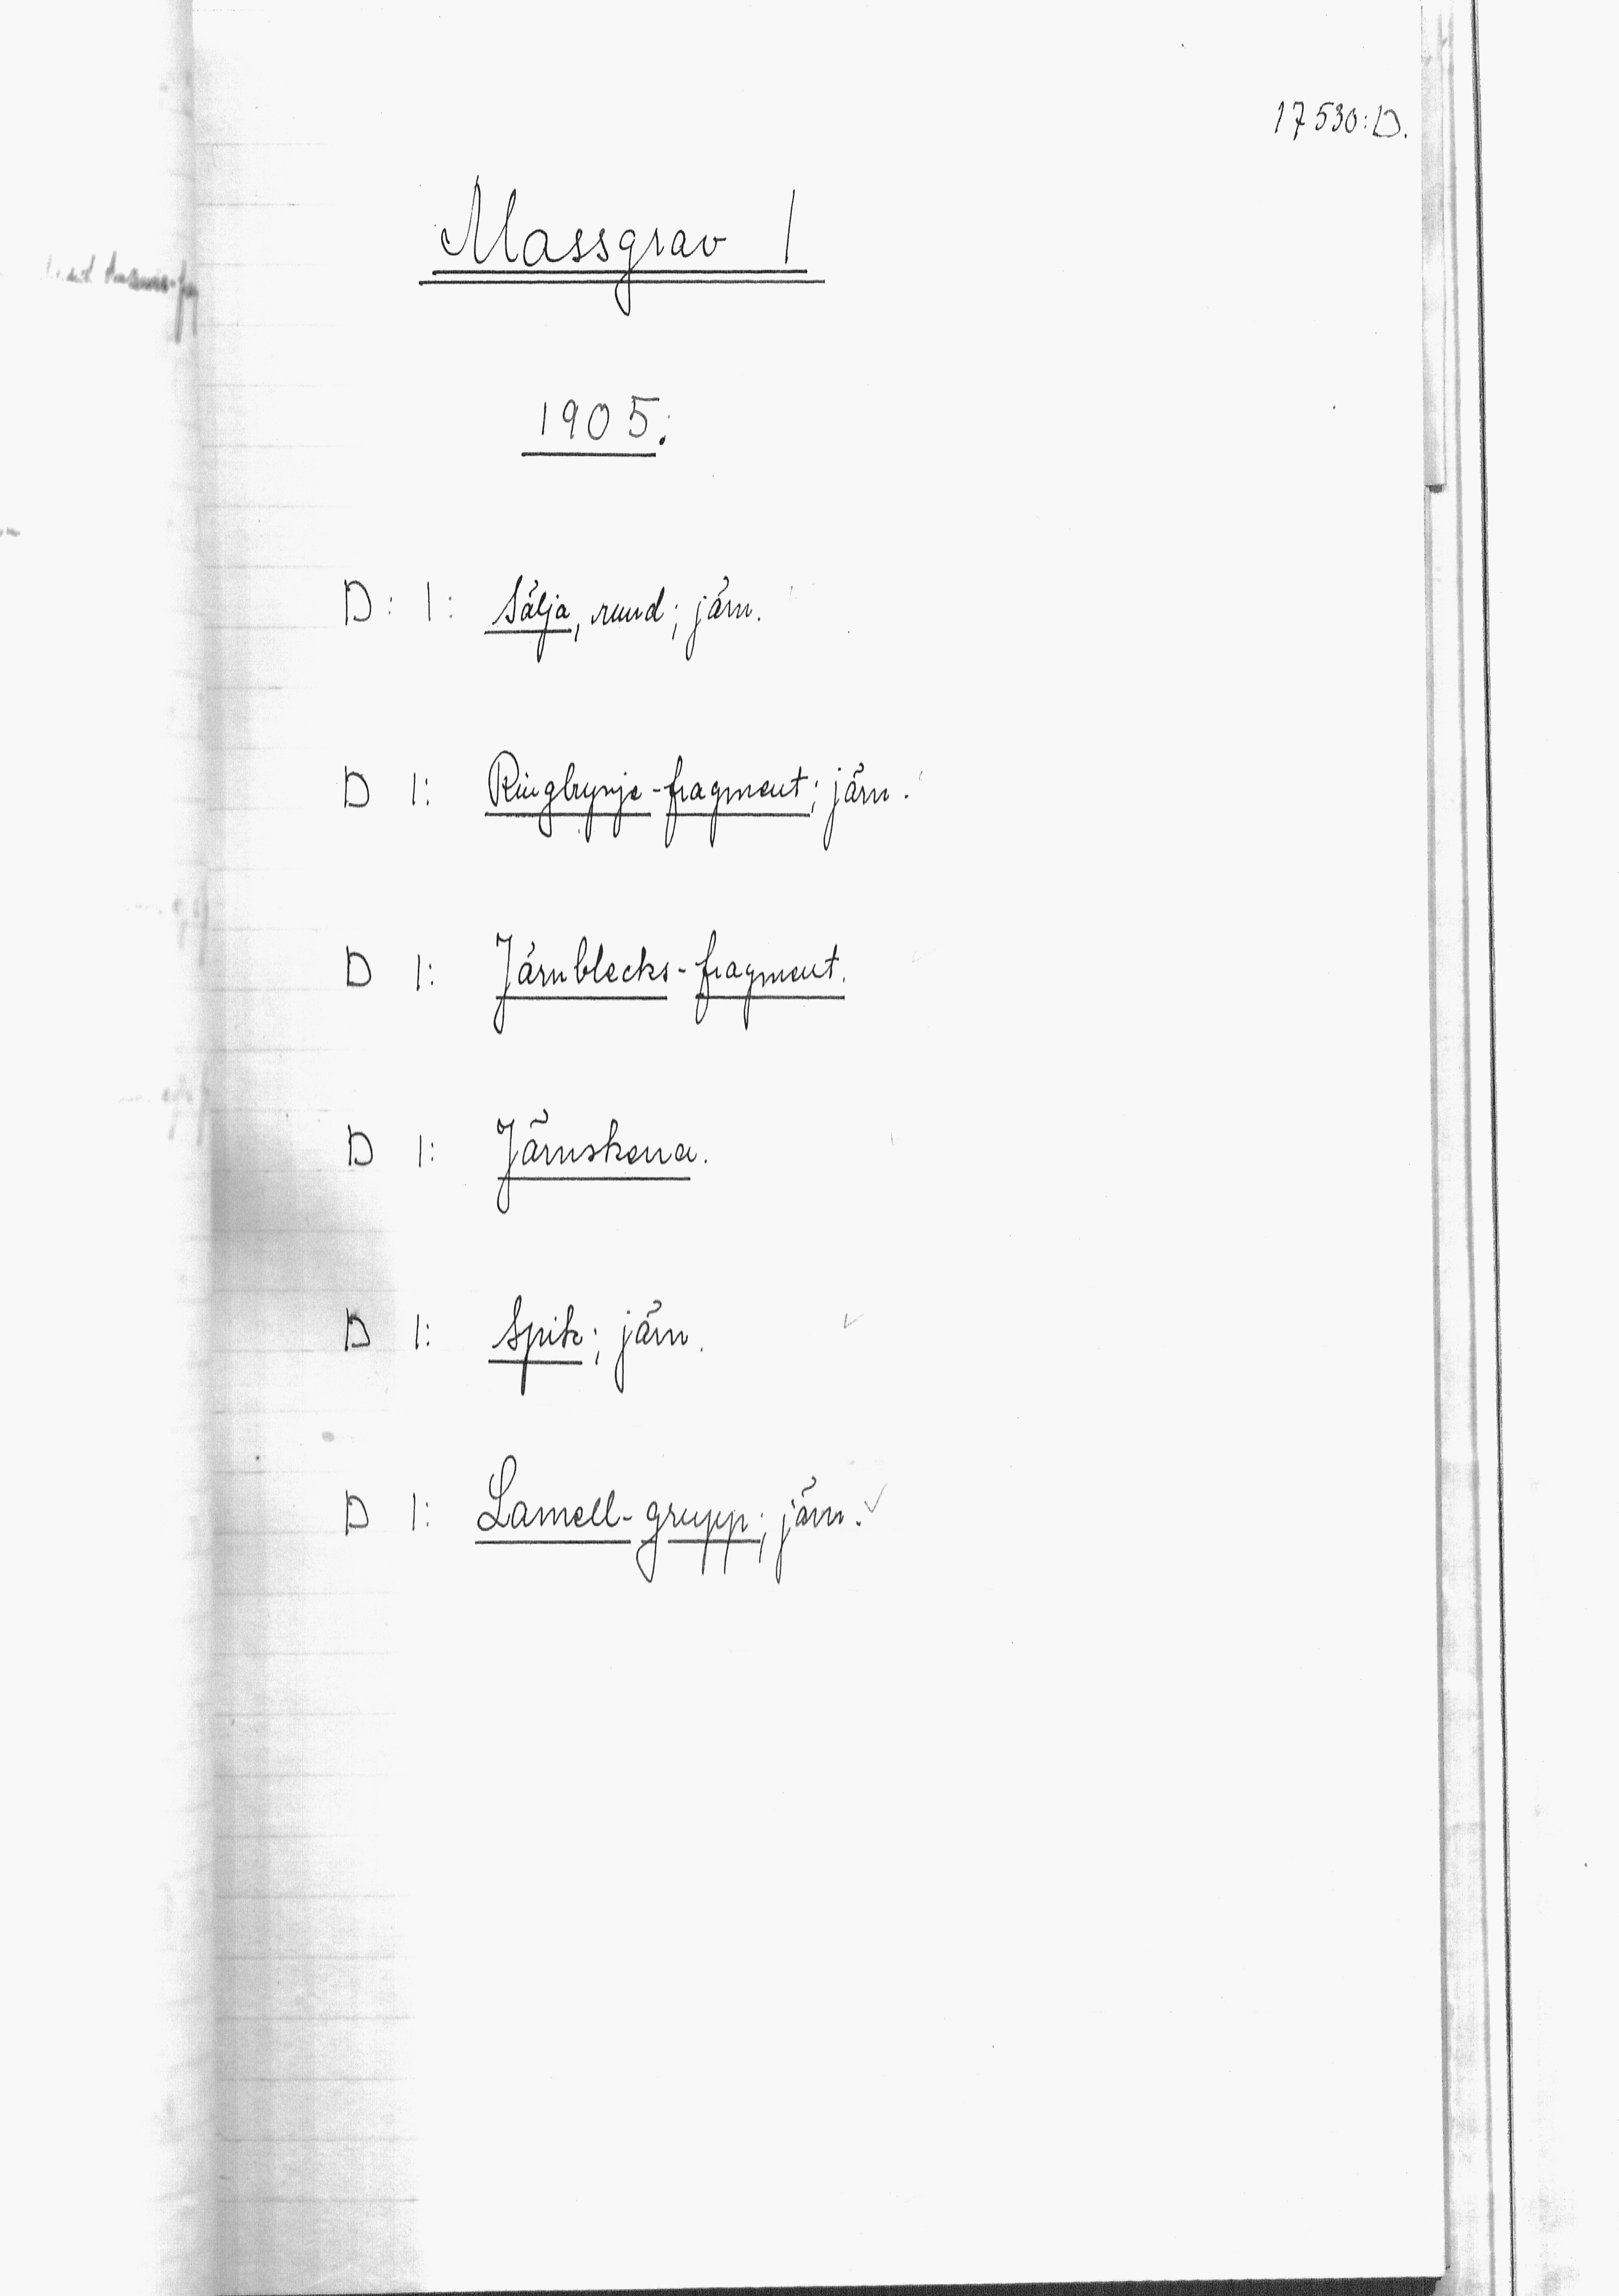 17530:D.
Massgrav 1
1905:
D: 1: Sälja, rund; järn.
D 1: Ringbrynje-fragment; järn.
D 1: Järnblecks-fragment.
D 1: Järnskena.
D 1: Spik; järn.
D 1: Lamell-grupp; järn.